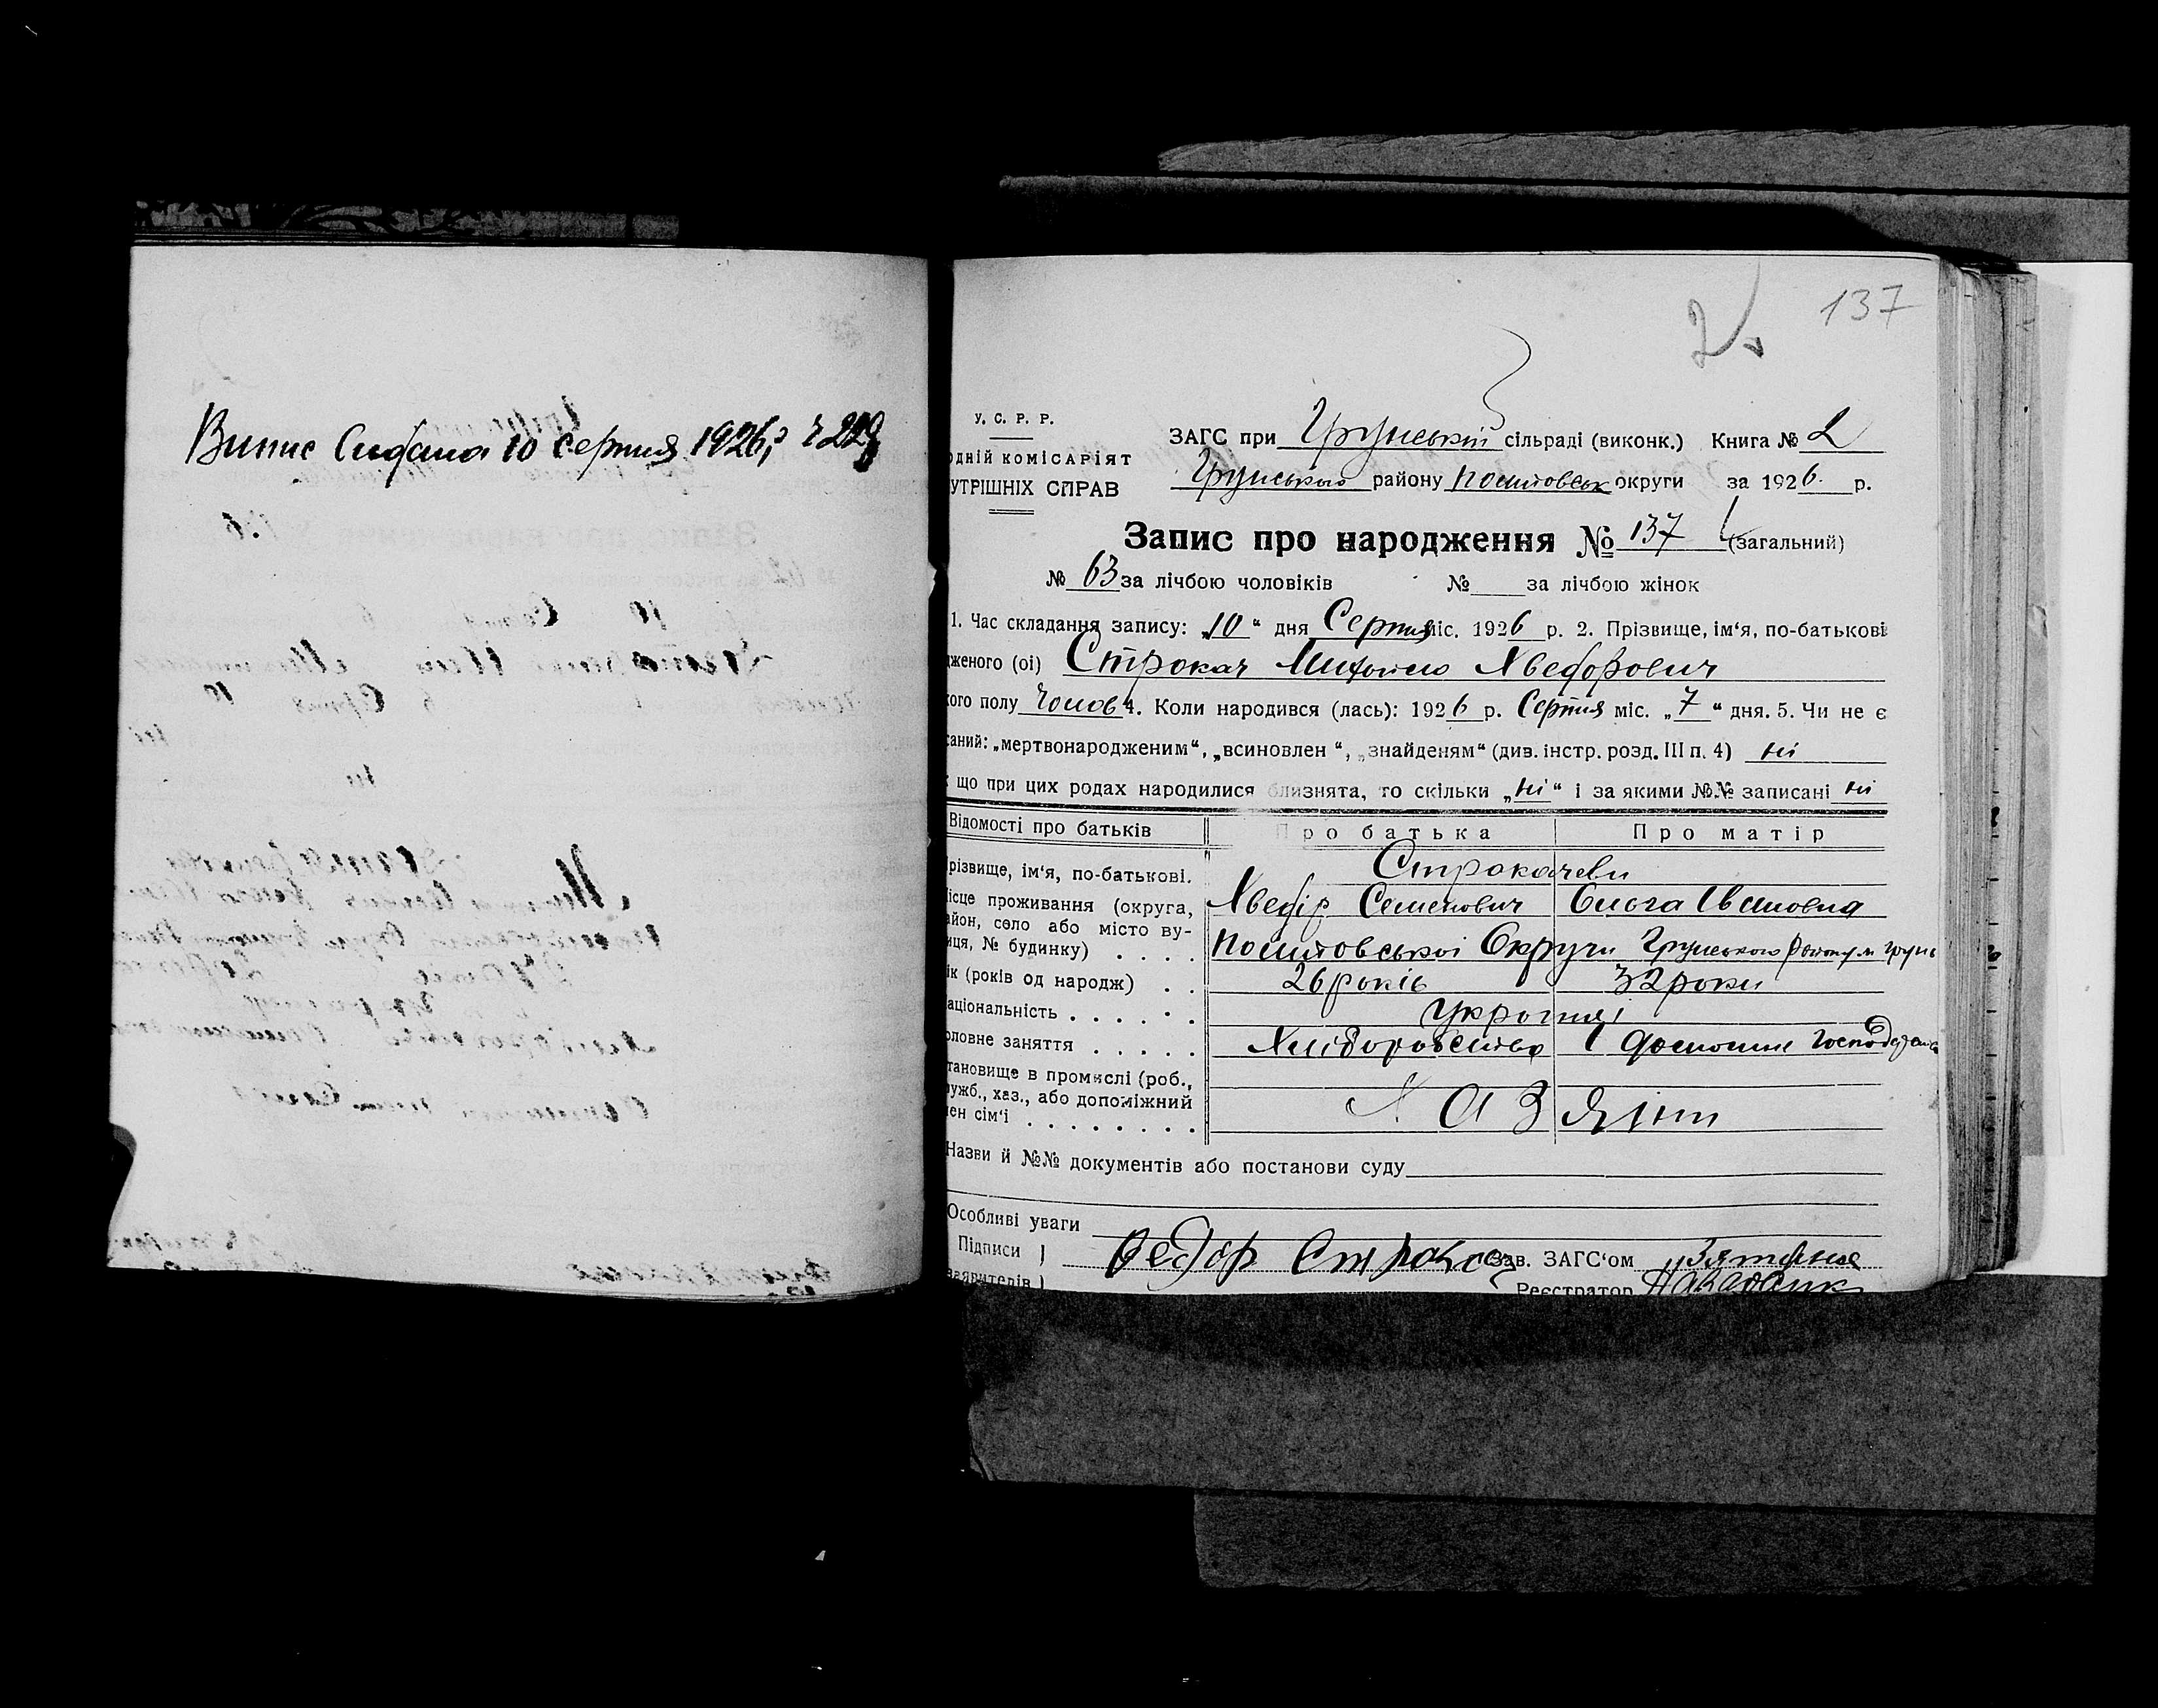 Випис Сидана 10 серпня 1926р
137
У. С. Р. Р.
одній комісаріят
утрішніх справ
ЗАГС при Грунській сільраді (виконк.) Книга № 2
Грунського району Полтовськ округи за 1926 р.
Запис про народження № 137 (загальний)
№ 63 за лічбою чоловіків № за лічбою жінок
1. Час складання запису: „10“ дня Серпня міс. 1926 р. 2. Прізвище, ім‘я, по-батькові
дженого (оі) Строкач Михайло Хведорович
кого полу Чолов 4. Коли народився (лась): 1926 р. Серпня міс. „7“ дня. 5. Чи не є
саний: „мертвонародженим“, „всиновлен “, „знайденям“ (див. інстр. розд. III п. 4) ні
що при цих родах народилися близнята, то скільки „ні“ і за якими №№ записані ні
Відомості про батьків Про батька Про матір
різвище, ім‘я, по-батькові. Строкачеви
ісце проживання (округа, Хведір Семенович Ольга Івановна
айон, село або місто ву-
иця, № будинку) . . . . Полтовської Округи Грунського Району м Грунь
ік (років од народж) . . 26 років 32 роки
аціональність . . . . . . Українці
оловне заняття . . . . . Хліборобство І домошне господарство
тановище в промислі (роб.,
ужб., хаз., або допоміжний Хазяіни
лен сім‘ї . . . . . . . .
Назви й №№ документів або постанови суду
Особливі уваги
Підписи Федор Строкач Зав. ЗАГС‘ом
заявителів
Реєстратор